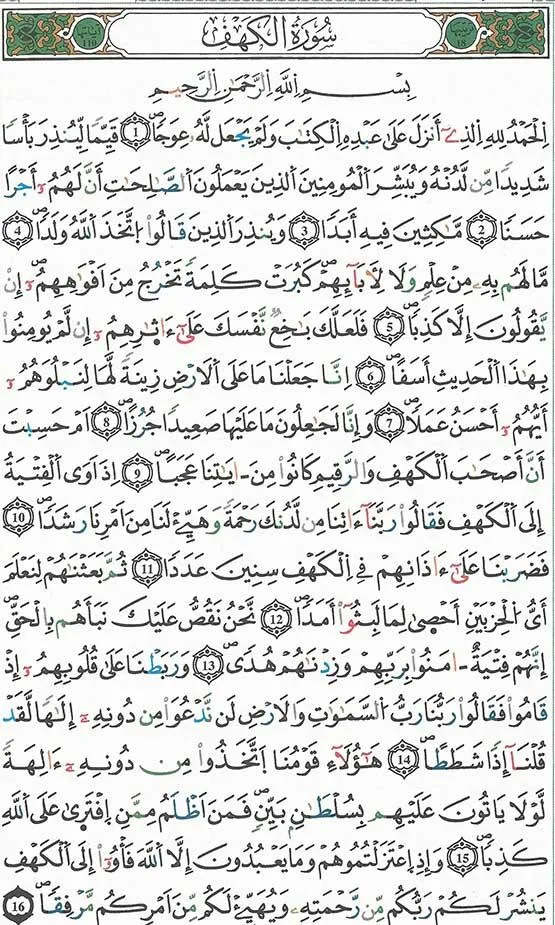 سُورَةُ الْكَهْفِ
بِسْمِ اِللَّهِ اِلرَّحْمَٰنِ اِلرَّحِيمِ
اِلْحَمْدُ لِلهِ اِلذِےٓ أَنزَلَ عَلَىٰ عَبْدِهِ اِلْكِتَٰبَ وَلَمْ يَجْعَل لَّهُۥ عِوَجاًۖ 1 قَيِّماٗ لِّيُنذِرَ بَأْساٗ
شَدِيداٗ مِّن لَّدُنْهُ وَيُبَشِّرَ اَلْمُومِنِينَ اَلذِينَ يَعْمَلُونَ اَلصَّٰلِحَٰتِ أَنَّ لَهُمُۥٓ أَجْراً
حَسَناٗ 2 مَّٰكِثِينَ فِيهِ أَبَداٗۖ 3 وَيُنذِرَ اَلذِينَ قَالُواْ اُ۪تَّخَذَ اَللَّهُ وَلَداٗۖ 4
مَّا لَهُم بِهِۦ مِنْ عِلْمٖ وَلَا لِأٓبَآئِهِمْۖ كَبُرَتْ كَلِمَةٗ تَخْرُجُ مِنَ اَفْوَٰهِهِمُۥٓۖ إِنْ
يَّقُولُونَ إِلَّا كَذِباٗۖ 5 فَلَعَلَّكَ بَٰخِعٞ نَّفْسَكَ عَلَىٰٓ ءَاثٰ۪رِهِمُۥٓ إِن لَّمْ يُومِنُواْ
بِهَٰذَا اَلْحَدِيثِ أَسَفاًۖ 6 اِنَّا جَعَلْنَا مَا عَلَى اَلَارْضِ زِينَةٗ لَّهَا لِنَبْلُوَهُمُۥٓ
أَيُّهُمُۥٓ أَحْسَنُ عَمَلاٗۖ 7 وَإِنَّا لَجَٰعِلُونَ مَا عَلَيْهَا صَعِيداٗ جُرُزاًۖ 8 اَمْ حَسِبْتَ
أَنَّ أَصْحَٰبَ اَلْكَهْفِ وَالرَّقِيمِ كَانُواْ مِنَ اٰيَٰتِنَا عَجَباًۖ 9 إِذَ اَوَى اَلْفِتْيَةُ
إِلَى اَلْكَهْفِ فَقَالُواْ رَبَّنَآ ءَاتِنَا مِن لَّدُنكَ رَحْمَةٗ وَهَيِّۓْ لَنَا مِنَ اَمْرِنَا رَشَداٗۖ 10
فَضَرَبْنَا عَلَىٰٓ ءَاذَانِهِمْ فِے اِلْكَهْفِ سِنِينَ عَدَداٗۖ 11 ثُمَّ بَعَثْنَٰهُمْ لِنَعْلَمَ
أَيُّ اُلْحِزْبَيْنِ أَحْص۪ىٰ لِمَا لَبِثُوٓاْ أَمَداٗۖ 12 نَّحْنُ نَقُصُّ عَلَيْكَ نَبَأَهُم بِالْحَقِّۖ
إِنَّهُمْ فِتْيَةٌ اٰمَنُواْ بِرَبِّهِمْ وَزِدْنَٰهُمْ هُدىٗۖ 13 وَرَبَطْنَا عَلَىٰ قُلُوبِهِمُۥٓ إِذْ
قَامُواْ فَقَالُواْ رَبُّنَا رَبُّ اُلسَّمَٰوَٰتِ وَالَارْضِ لَن نَّدْعُوَاْ مِن دُونِهِۦٓ إِلَٰهاٗۖ لَّقَد
قُلْنَآ إِذاٗ شَطَطاًۖ 14 هَٰٓؤُلَآءِ قَوْمُنَا اَ۪تَّخَذُواْ مِن دُونِهِۦٓ ءَالِهَةٗ
لَّوْلَا يَاتُونَ عَلَيْهِم بِسُلْطَٰنِۢ بَيِّنٖۖ فَمَنَ اَظْلَمُ مِمَّنِ اِ۪فْتَر۪ىٰ عَلَى اَللَّهِ
كَذِباٗۖ 15 وَإِذِ اِ۪عْتَزَلْتُمُوهُمْ وَمَا يَعْبُدُونَ إِلَّا اَللَّهَ فَأْوُۥٓاْ إِلَى اَلْكَهْفِ
يَنشُرْ لَكُمْ رَبُّكُم مِّن رَّحْمَتِهِۦ وَيُهَيِّۓْ لَكُم مِّنَ اَمْرِكُم مَّرْفِقاٗۖ 16